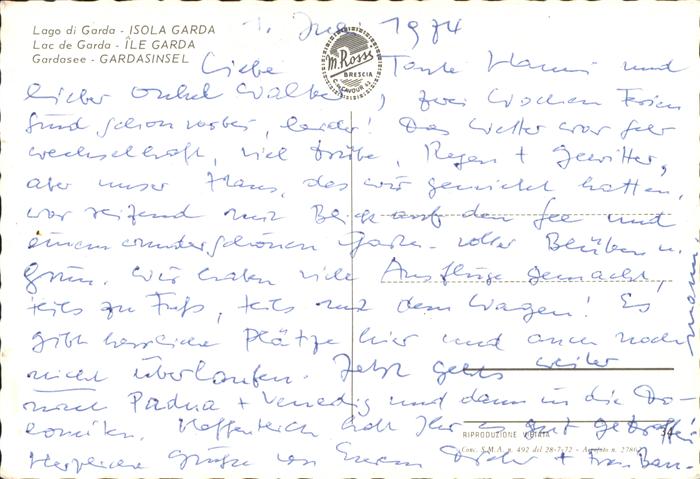 Lago di Garda - ISOLA GARDA
Lac de Garda - ÎLE GARDA
Gardasee - GARDASINSEL
M. Rossi
BRESCIA
C. CAVOUR 42
1. Juni 1974
Liebe Tante Hanni und
lieber Onkel Walter, zwei Wochen Ferien
sind schon vorbei, leider! Das Wetter war sehr
wechselhaft, viel trübe, Regen + Gewitter,
aber unser Haus, das wir gemietet hatten,
war reizend mit Blick auf den See und
einem wunderschönen Garten voller Blühen u.
Grün. Wir haben viele Ausflüge gemacht,
teils zu Fuß, teils mit dem Wagen! Es
gibt herrliche Plätze hier und auch noch
nicht überlaufen. Jetzt geht's weiter
nach Padua + Venedig und dann in die Do-
lomiten. Hoffentlich habt Ihr es gut getroffen
Herzliche Grüße von Eurem + Frau
RIPRODUZIONE VIETATA
Conc. S.M.A. n. 492 del 28-7-72